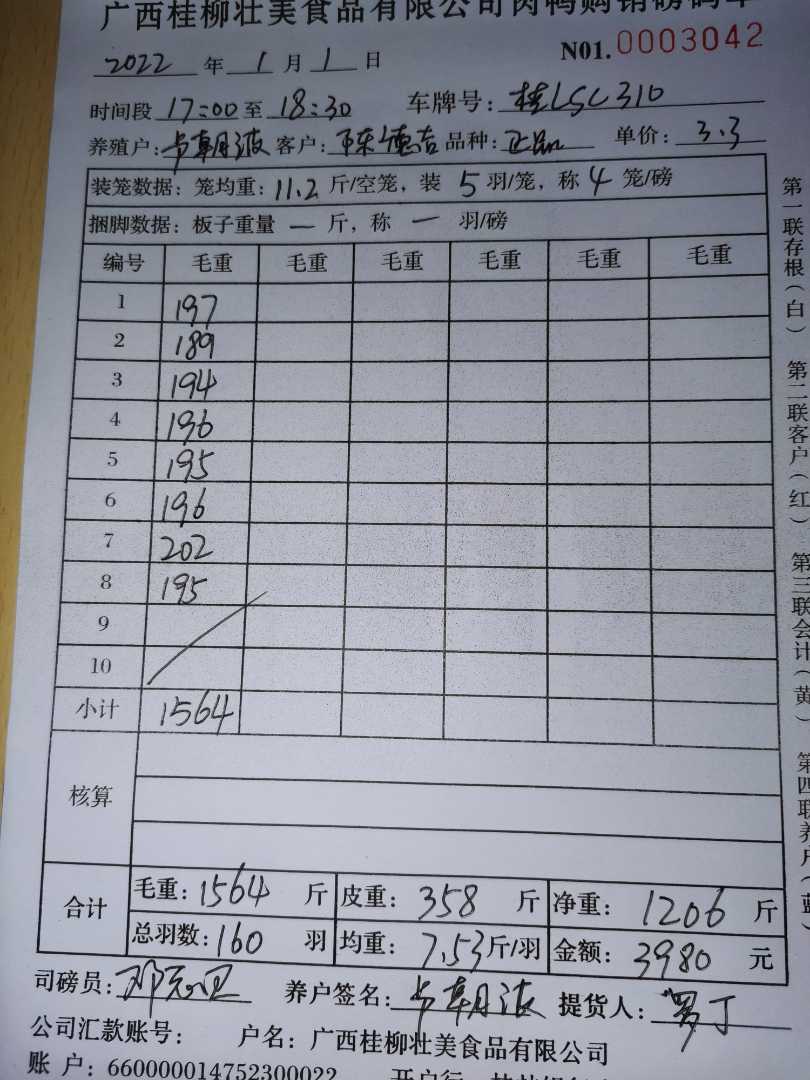 广西桂柳壮美食品有限公司肉鸭购销磅码单
2022 年 1 月 1 日 N01. 0003042
时间段 17:00 至 18:30 车牌号: 桂LSC310
养殖户: 卡朝波 客户: 陈德吉 品种: 正品 单价: 3.3
装笼数据: 笼均重: 11.2 斤/空笼, 装 5 羽/笼, 称 4 笼/磅
捆脚数据: 板子重量 — 斤, 称 — 羽/磅
编号 毛重 毛重 毛重 毛重 毛重 毛重
1 197
2 189
3 194
4 196
5 195
6 196
7 202
8 195
9
10
小计 1564
核算
合计 毛重: 1564 斤 皮重: 358 斤 净重: 1206 斤
总羽数: 160 羽 均重: 7.53 斤/羽 金额: 3980 元
司磅员: 养户签名: 卡朝波 提货人: 罗丁
公司汇款账号: 户名: 广西桂柳壮美食品有限公司
账户: 660000014752300022 开户行
第一联存根(白) 第二联客户(红) 第三联会计(黄) 第四联养户(蓝)